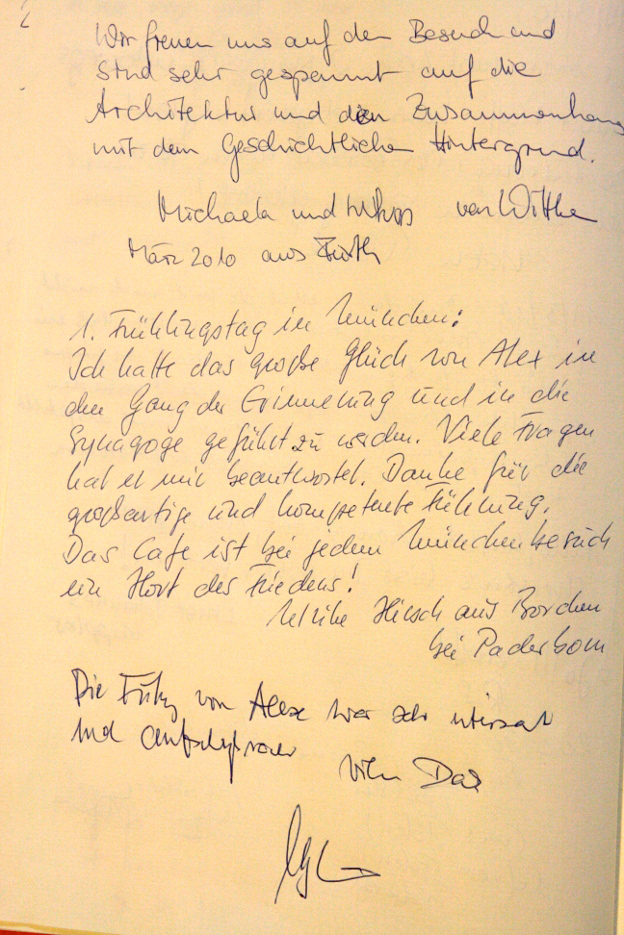 Wir freuen uns auf den Besuch und
sind sehr gespannt auf die
Architektur und den Zusammenhang
mit dem Geschichtlichen Hintergrund.
Michaela und von
März 2010 aus Fürth
1. Frühlingstag in München:
Ich hatte das große Glück von Alex in
den Gang der Erinnerung und in die
Synagoge geführt zu werden. Viele Fragen
hat er mir beantwortet. Danke für die
großartige und kompetente Führung.
Das Cafe ist bei jedem Münchenbesuch
ein Hort des Friedens!
Ulrike Hirsch aus Borchen
bei Paderborn
Die von Alex war sehr
und
Vielen